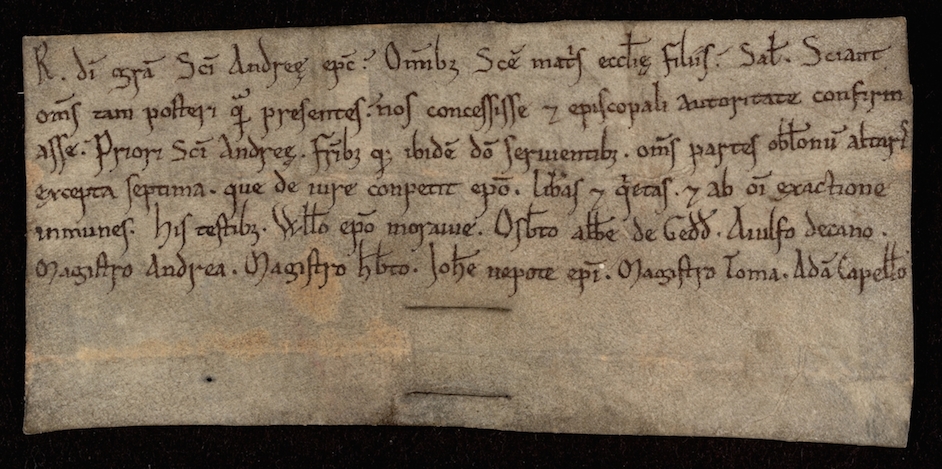 R. dī gr̄a Sc̄i Andreę epc̄. Om̄ib; Sc̄e mat̓s eccl̄ię filiis. Sal̄. Sciant
om̄s tam posteri q̄ͣ presentes. nos concessisse ⁊ episcopali autoritate confirm
asse. Priori Sc̄i Andreę. fr̄ib; q; ibidē dō seruientib;. om̄s partes obl̄onū altar̓
excepta septima. que de iure conpetit epō. lib̄as ⁊ q̓etas. ⁊ ab oī exactione
inmunes. His testib;. Will̄o epō morauie. Osb̄to abb̄e de Gedd̄. Aiulfo decano.
Magistro Andrea. Magistro hb̄to. Ioh̄e nepote epī. Magistro Toma. Adā Capell̄o